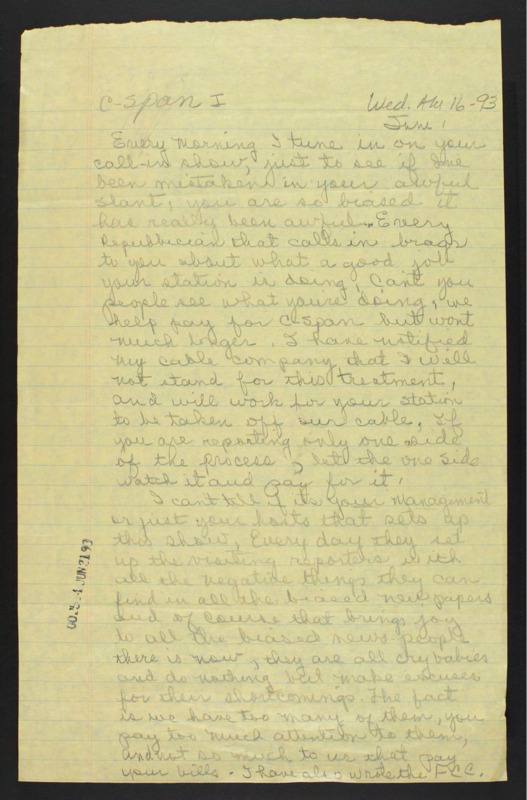 C-Span I
Wed. AM 16-93
June
Every Morning I tune in on your
call-in show, just to see if I've
been mistaken in your awful
slant, you are so biased it
has really been awful. Every
Republician that calls in brags
to you about what a good job
your station is doing, Can't you
people see what youre doing, we
help pay for C-span but wont
much longer. I have notified
my cable company that I will
not stand for this treatment,
and will work for your station
to be taken off our cable, If
you are reporting only one side
of the process, let the one side
watch it and pay for it,
I can't tell if its your management
or just your hosts that sets up
the show, Every day they set
up the visiting reporters with
all the negative things they can
find in all the biased newspapers
and of course that brings joy
to all the biased news people
there is now, they are all crybabies
and do nothing but make excuses
for their shortcomings. The fact
is we have too many of them, you
pay too much attention to them,
and not so much to us that pay
your bills. I have also wrote the FCC.
JUN 21 93